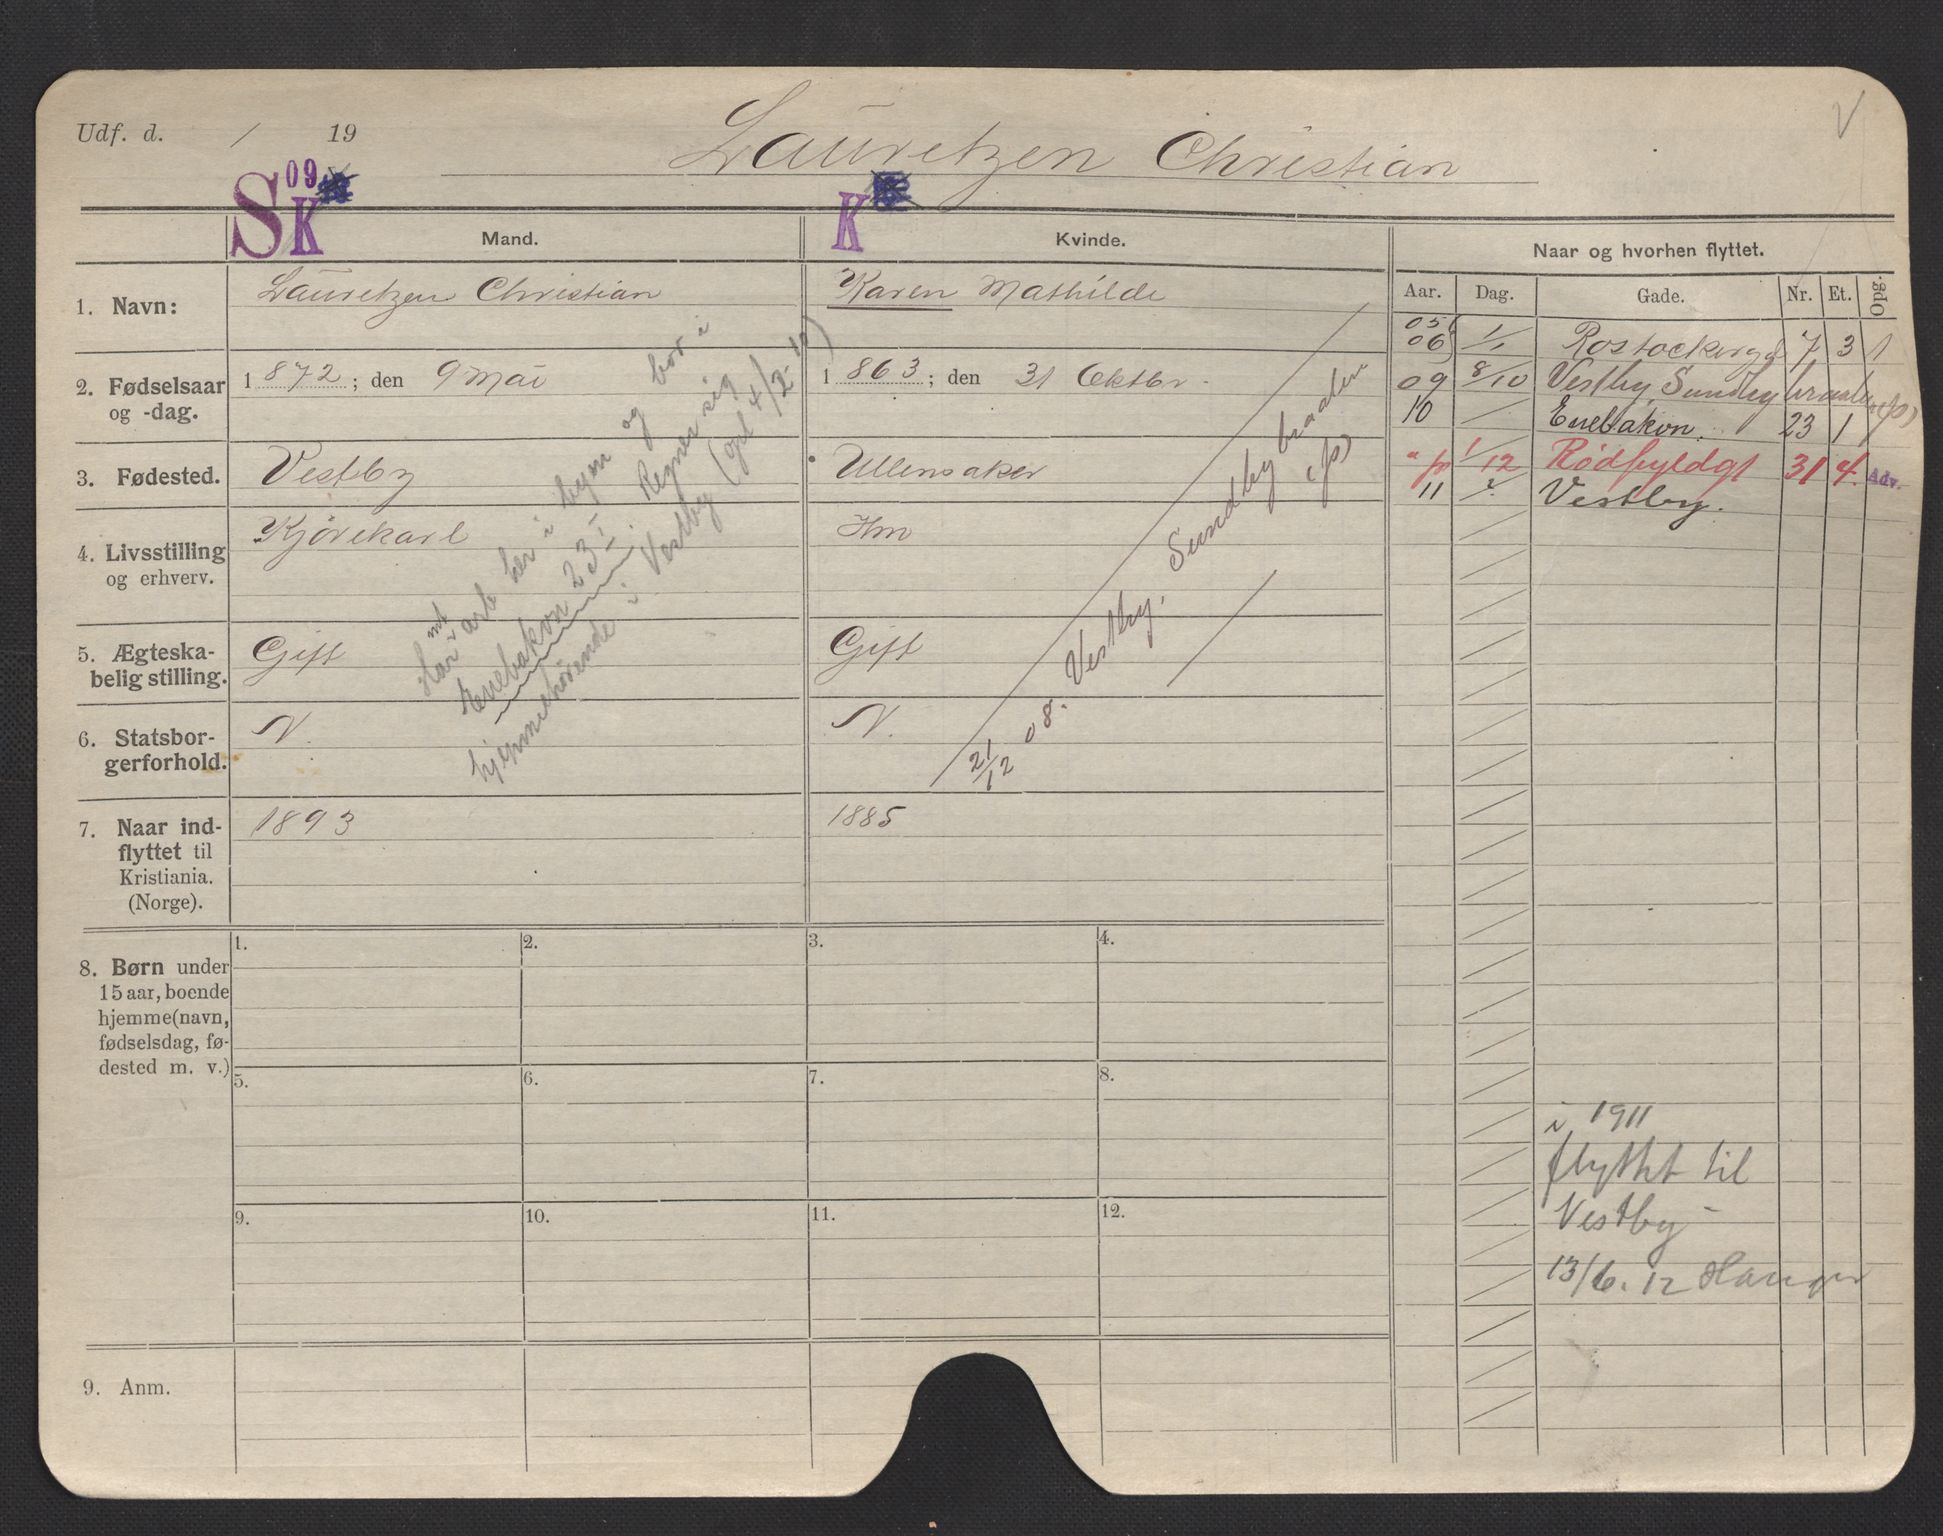 Udf. d. / 19
Lauretzen Christian
V
09
S K
K
Mand.
Kvinde.
Naar og hvorhen flyttet.
Aar. Dag. Gade. Nr. Et. Opg.
1. Navn:
Lauretzen Christian
Karen Mathilde
2. Fødselsaar
og -dag.
1872; den 9 Mai
1863; den 31 Oktbr.
3. Fødested.
Vestby
Ullensaker
4. Livsstilling
og erhverv.
Kjørekarl
Hm
5. Ægteska-
belig stilling.
Gift
Gift
6. Statsbor-
gerforhold.
N.
N.
7. Naar ind-
flyttet til
Kristiania.
(Norge).
1893
1885
Har int arb her i byen og bor i
Enebakvn 23 I. Regner sig
hjemmehørende i Vestby (gel 4/2-10)
21/12 08. Vestby, Sundbybraaten
(fs)
05
06 1/1 Rostockergd 7 3 1
09 8/10 Vestby, Sundbybraaten (fs)
10 / Enebakvn. 23 1
" 1/12 Rødfyldgt 31 4. Adv.
11 ? Vestby.
8. Børn under
15 aar, boende
hjemme (navn,
fødselsdag, fø-
dested m. v.)
1. 2. 3. 4.
5. 6. 7. 8.
9. 10. 11. 12.
i 1911
flyttet til
Vestby –
13/6. 12
9. Anm.